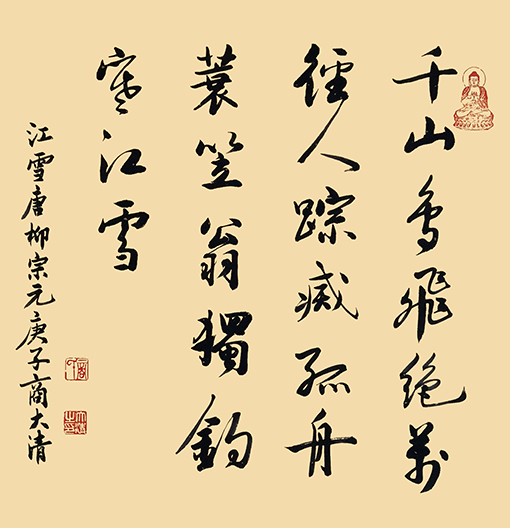 千山鸟飛絶萬
徑人踪滅孤舟
蓑笠翁獨釣
寒江雪
江雪唐柳宗元庚子商大清